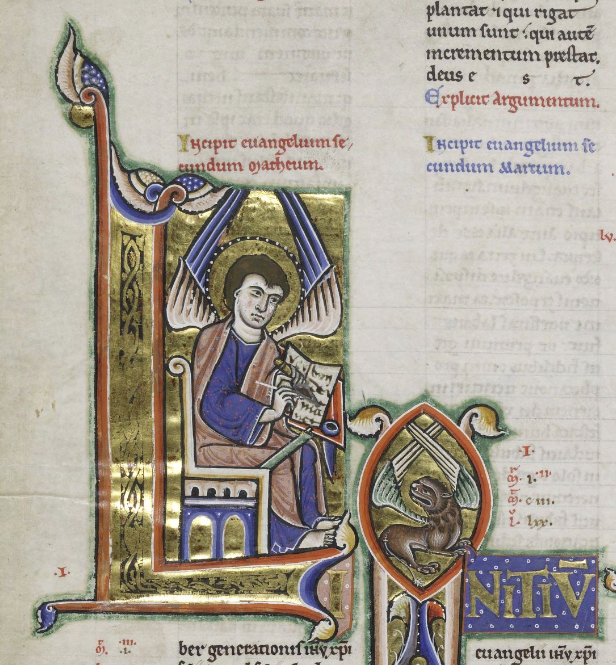 plantat ⁊ qui rigat
unum sunt· qui autē
incrementum prestat.
deus e s t.
Explicit Argumentum.
Incipit euangelium se
cundum Matheum.
Incipit euangelium se
cundum Marcum.
lv.
.I.
.I.
L I
ber generationis ihū xp̄i
INITIV̄
euangelii ihū xp̄i